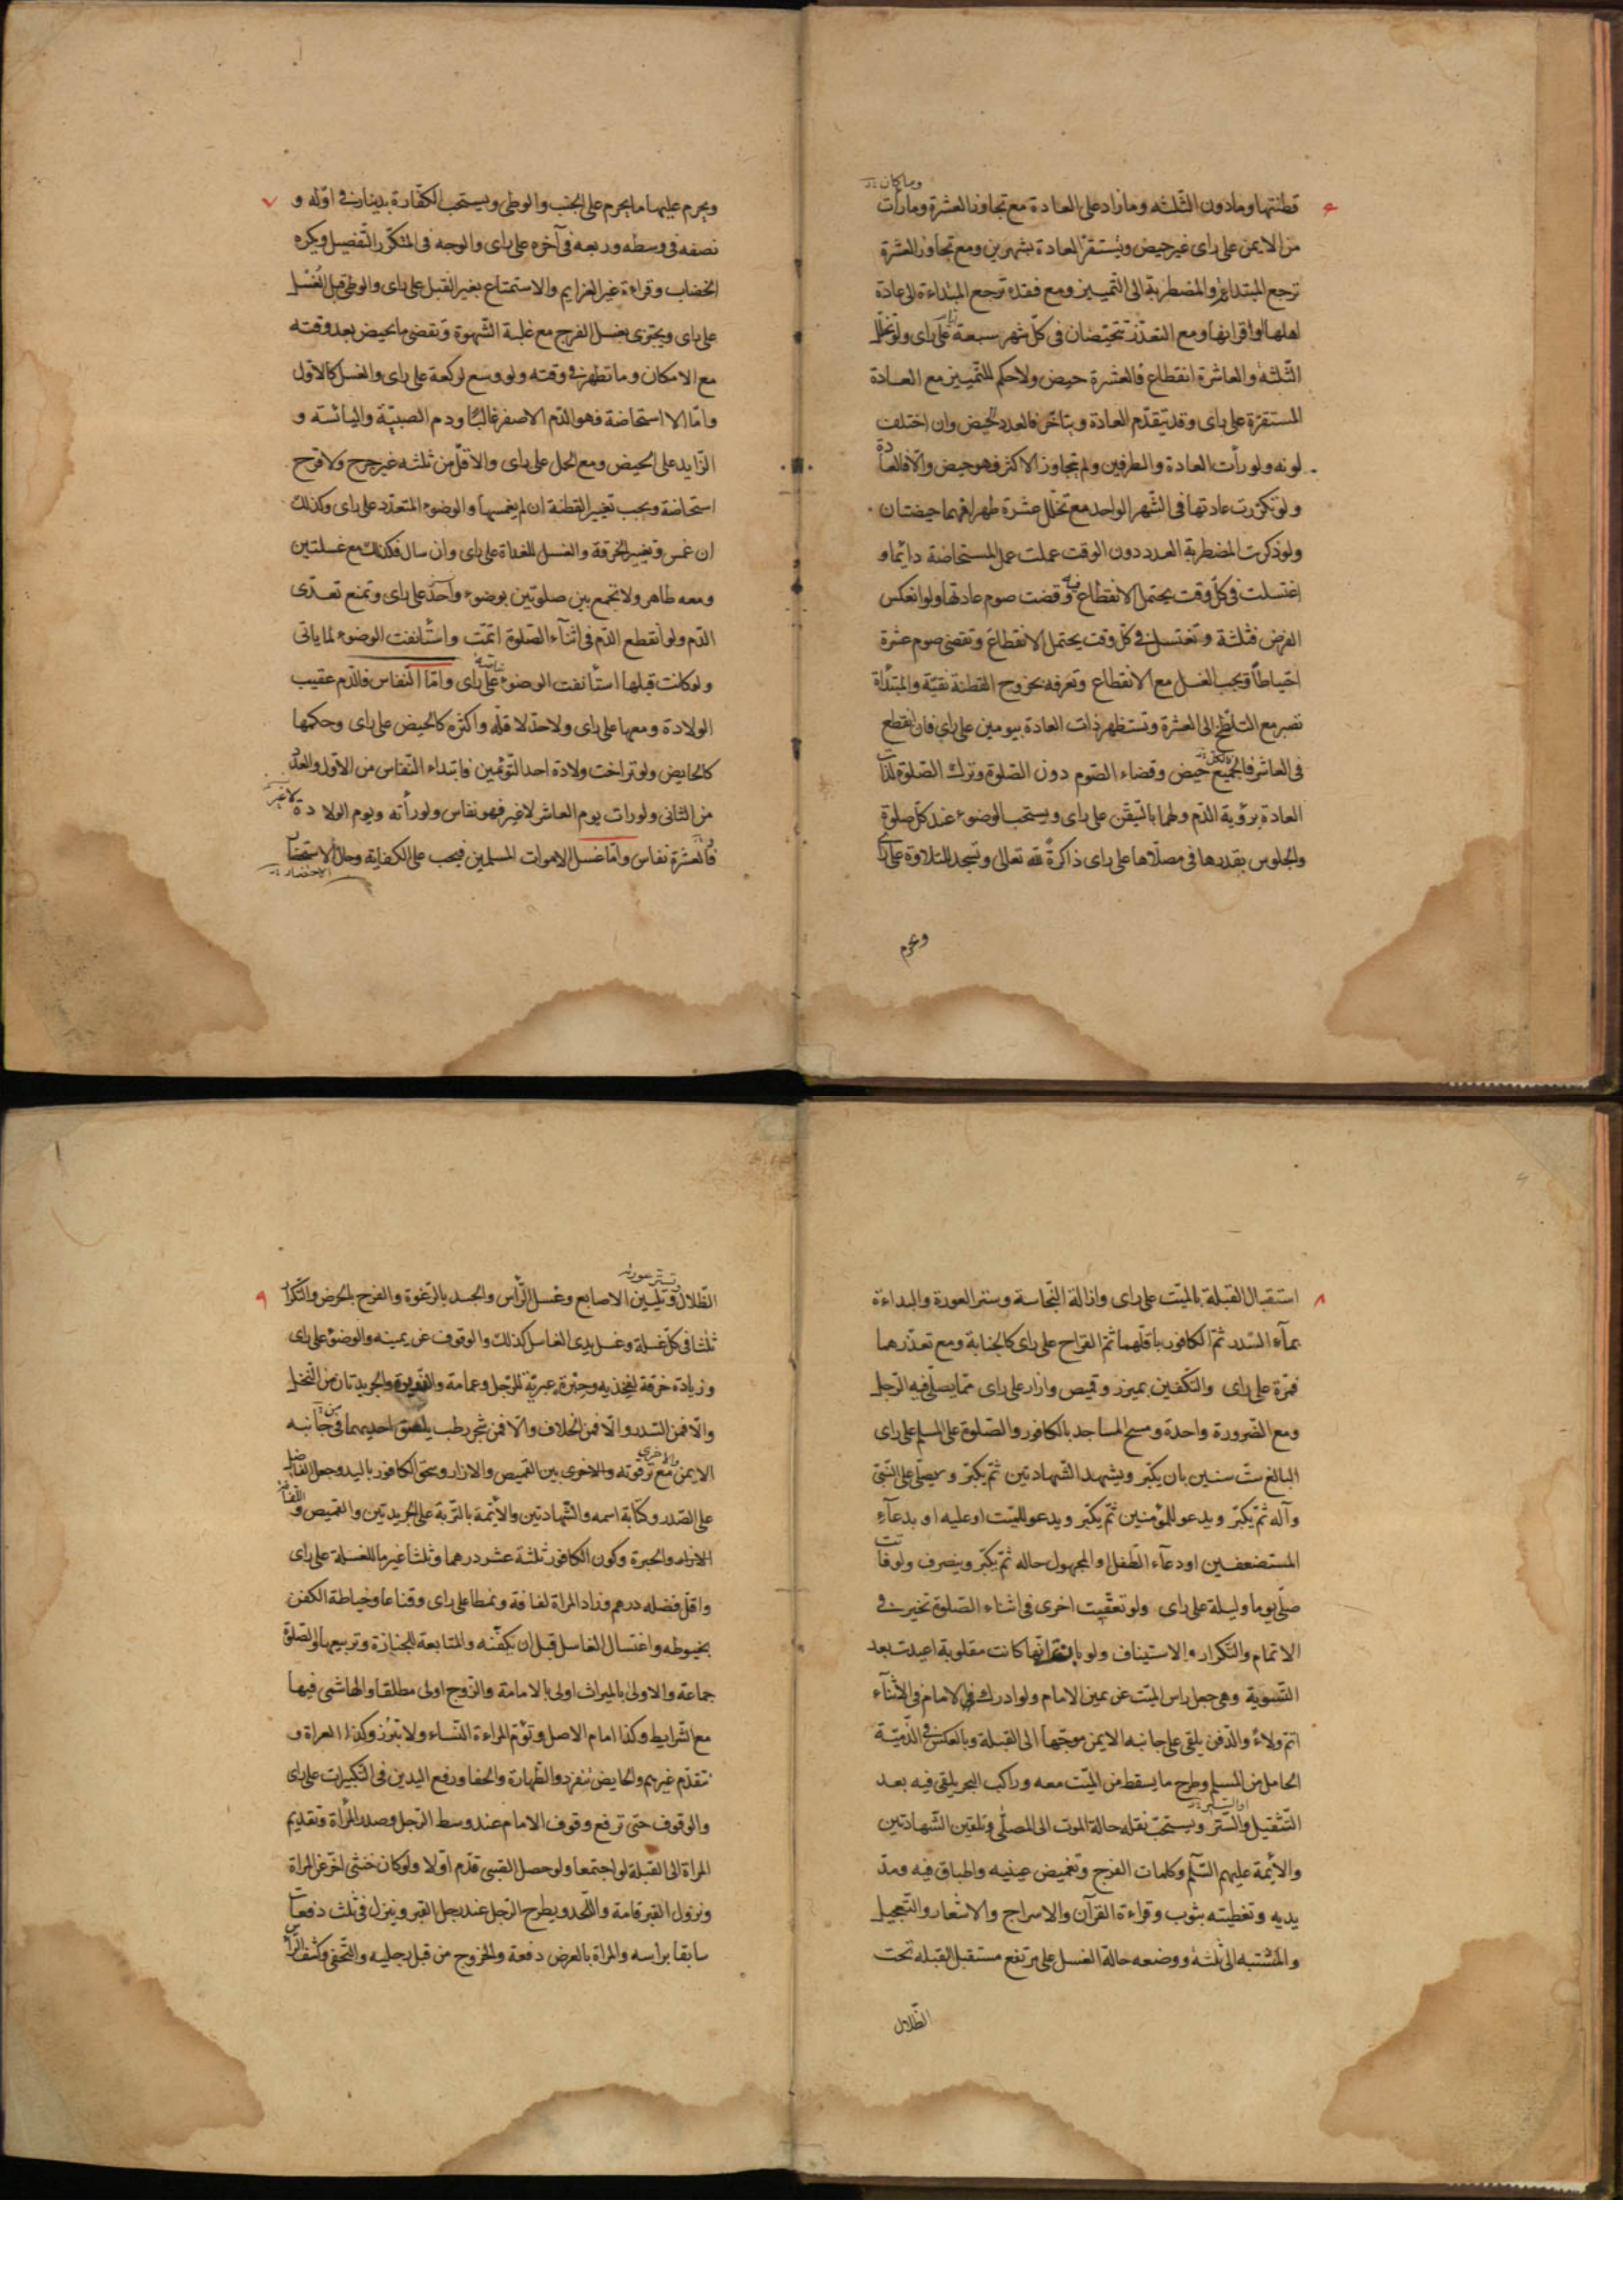 وما كان
۶
قطنتها وما دون الثلثه وما زاد على العادة مع تجاوز العشرة وما رأت
من الايمن على راى غير حيض ويستقرّ العادة بشهرين ومع تجاوز العشرة
ترجع المبتدأة والمضطربة الى التمييز ومع فقده ترجع المبتداءة الى عادة
اهلها او اقرانها ومع التعذر تتحيّضان فى كلّ شهر سبعة على راى ولو تخلّل
الثلثة والعاشرة انقطاع فالعشرة حيض ولا حكم للتمييز مع العادة
المستقرّة على راى وقد يتقدّم العادة ويتاخّر فالعدد الحيض وان اختلف
لونه ولو رأت العادة والطرفين ولم يتجاوز الاكثر فهو حيض والّا فالعادة
ولو تكرّرت عادتها فى الشّهر الواحد مع تخلّل عشرة طهرا فهما حيضتان
ولو ذكرت المضطربة العدد دون الوقت عملت عمل المستحاضة دائما و
اغتسلت فى كلّ وقت يحتمل الانقطاع فيه وقضت صوم عادتها ولو انعكس
الفرض فثلثة وتغتسل فى كلّ وقت يحتمل الانقطاع وتقضى صوم عشرة
احتياطًا ويجب الغسل مع الانقطاع وتعرفه بخروج القطنة نقيّة والمبتدأة
تصبر مع التلطّخ الى العشرة وتستظهر ذات العادة بيومين على راى فان انقطع
فى العاشر فالجميع حيض وقضاء الصّوم دون الصّلوة وترك الصّلوة لذات
العادة برؤية الدّم ولهما بالتيقّن على راى ويستحب الوضوء عند كل صلوة
والجلوس بقدرها فى مصلّاها على راى ذاكرةً لله تعالى وتسجد للتلاوة على راى
ويحرم
۷
ويحرم عليها ما يحرم على الجنب والوطى ويستحب الكفّارة بدينار فى اوّله و
نصفه فى وسطه وربعه فى آخره على راى والوجه فى المتكرّر التّفصيل ويكره
الخضاب وقراءة غير العزايم والاستمتاع بغير القبل على راى والوطى قبل الغُسل
على راى ويجتزى بغسل الفرج مع غلبة الشّهوة وتقضى ما تحيض بعد وقته
مع الامكان وما تطهر فى وقته ولو وسع لركعة على راى والغسل كالاوّل
وامّا الاستحاضة فهو الدّم الاصفر غالبًا ودم الصبيّة واليائسته و
الزّايد على الحيض ومع الحمل على راى والاقلّ من ثلثه غير جرح ولا قرح
استحاضة ويجب تغيير القطنة ان لم يغمسها والوضوء المتعدّد على راى وكذلك
ان غمس وتغيير الخرقة والغسل للغداة على راى وان سال فكذلك مع غسلتين
ومعه طاهر ولا تجمع بين صلوتين بوضوء واحد على راى وتمنع تعدّى
الدّم ولو انقطع الدّم فى اثنآء الصّلوة اتمّت واستأنفت الوضوء لما ياتى
ولو كانت قبلها استأنفت الوضوء خاصّة على راى وامّا النّفاس فالدّم عقيب
الولادة ومعها على راى ولا حدّ لاقلّه واكثره كالحيض على راى وحكمها
كالحايض ولو تراخت ولادة احد التّوئمين فابتداء النّفاس من الاوّل والعدد
من الثانى ولو رات يوم العاشر لا غير فهو نفاس ولو رأته ويوم الولادة لا غير
فالعشرة نفاس وامّا غسل الاموات المسلمين فيجب على الكفاية وحال الاستحضار
الاحتضار
۸
استقبال القبلة بالميّت على راى وازالة النّجاسة وستر العورة والبداءة
بمآء السّدر ثمّ الكافور باقلّهما ثمّ القراح على راى كالجنابة ومع تعذّرهما
فمرّة على راى والتكفين بميزر وقميص وازار على راى ممّا يصلّى فيه الرّجل
ومع الضرورة واحدة ومسح المساجد بالكافور والصّلوة على المسلم على راى
البالغ ستّ سنين بان يكبّر ويشهد الشّهادتين ثمّ يكبّر ويصلّى على النّبىّ
وآله ثمّ يكبّر ويدعو للمؤمنين ثمّ يكبّر ويدعو للميّت او عليه او بدعآء
المستضعفين او دعآء الطّفل او المجهول حاله ثمّ يكبّر وينصرف ولو فاتت
صلّى يوما وليلة على راى ولو تعقّبت اخرى فى اثناء الصّلوة تخيّر فى
الاتمام والتّكرار والاستيناف ولو بان انّها كانت مقلوبة اعيدت بعد
التّسوية وهى جعل راس الميّت عن يمين الامام ولو ادرك الامام فى الاثنآء
اتمّ ولاءً والدّفن يلقى على جانبه الايمن موجّهاً الى القبلة وبالعكس فى الذّميّة
الحامل من المسلم وطرح ما يسقط من الميّت معه وراكب البحر يلقى فيه بعد
التّثقيل والسّتر ويستحبّ نقله حالة الموت الى المصلّى وتلقين الشّهادتين
والأيمّة عليهم السّلم وكلمات الفرج وتغميض عينيه واطباق فيه ومدّ
يديه وتغطيته بثوب وقراءة القرآن والاسراج والاشعار والتّعجيل
والمشتبه الى ثلثة ووضعه حالة الغسل على مرتفع مستقبل القبله تحت
الظّلال
۹
وستر عورته
الظّلال وتليين الاصابع وغسل الرّأس والجسد بالرّغوة والفرج بالحرض والتّكرار
ثلثا فى كلّ غسلة وغسل يدى الغاسل كذلك والوقوف عن يمينه والوضوء على راى
وزيادة خرقة لفخذيه وحِبَرة عبريّة للرّجل وعمامة والجريدتان من النّخل
والّا فمن السّدر والّا فمن الخلاف والّا فمن شجر رطب يلصق احديهما فى جانبه
الايمن مع ترقوته والاخرى بين القميص والازار وسحق الكافور باليد وجعل الفاضل
على الصّدر وكتابة اسمه والشّهادتين والأيمّة بالتّربة على الجريدتين والقميص واللفافة
الازار والحبرة وكون الكافور ثلثة عشر درهما وثلثا غير ما للغسلة على راى
واقلّ فضله درهم وزاد المراة لفافة ونمطا على راى وقناعا وخياطة الكفن
بخيوطه واغتسال الغاسل قبل ان يكفّنه والمتابعة للجنازة وتربيعها والصّلوة
جماعة والاولى بالميراث اولى بالامامة والزّوج اولى مطلقا والهاشمى فيها
مع الشّرايط وكذا امام الاصل وتؤمّ المراءة النّساء ولا تبرُز وكذا العراة و
تتقدّم غيرهم والحايض تنفرد والطّهارة والحفا ورفع اليدين فى التّكبيرات على راى
والوقوف حتى ترفع وقوف الامام عند وسط الرّجل وصدر المرأة وتقديم
المراة الى القبلة لو اجتمعا ولو حصل الصّبى قدّم اوّلا ولو كان خنثى اخّر عن المراة
ونزول القبر قامة واللّحد ويطرح الرّجل عند رجل القبر وينزل فى ثلث دفعات
سابقا براسه والمراة بالعرض دفعة والخروج من قبل رجليه والتّحفى وكشف الرّأس